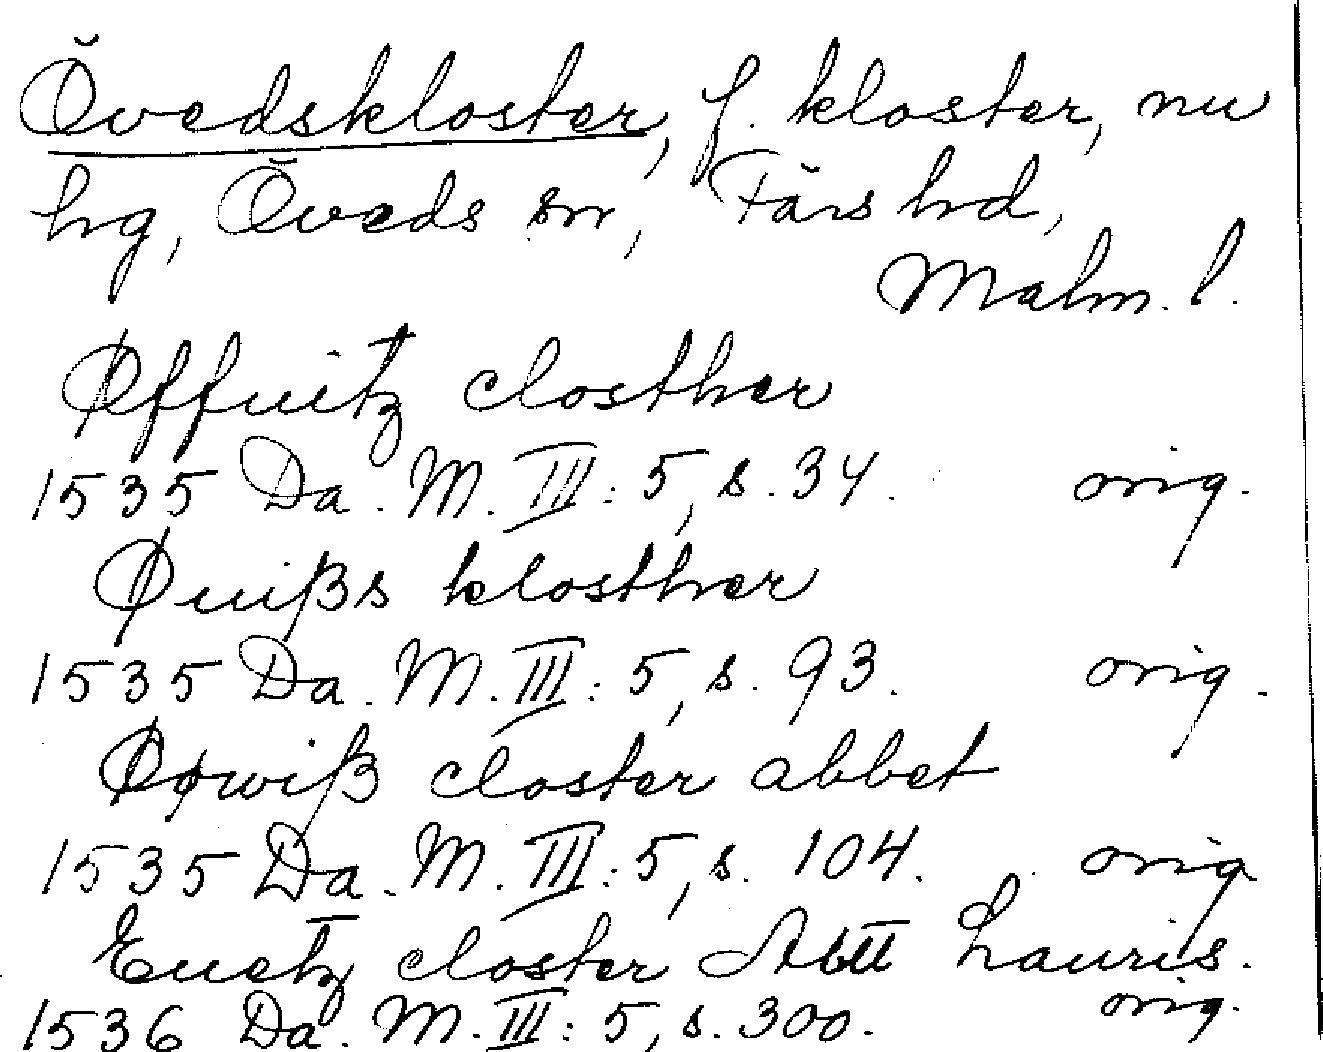 Övedskloster, f. kloster, nu
hg, Öveds sn, Färs hd,
Malm. l.
Øffuitz closther
1535 Da. M. III: 5, s. 34. orig.
Øuißs klosther
1535 Da. M. III: 5, s. 93. orig.
Øøwiß closter abbet
1535 Da. M. III: 5, s. 104. orig.
Euetz closter Abtt Lauris.
1536 Da. M. III: 5, s. 300. orig.